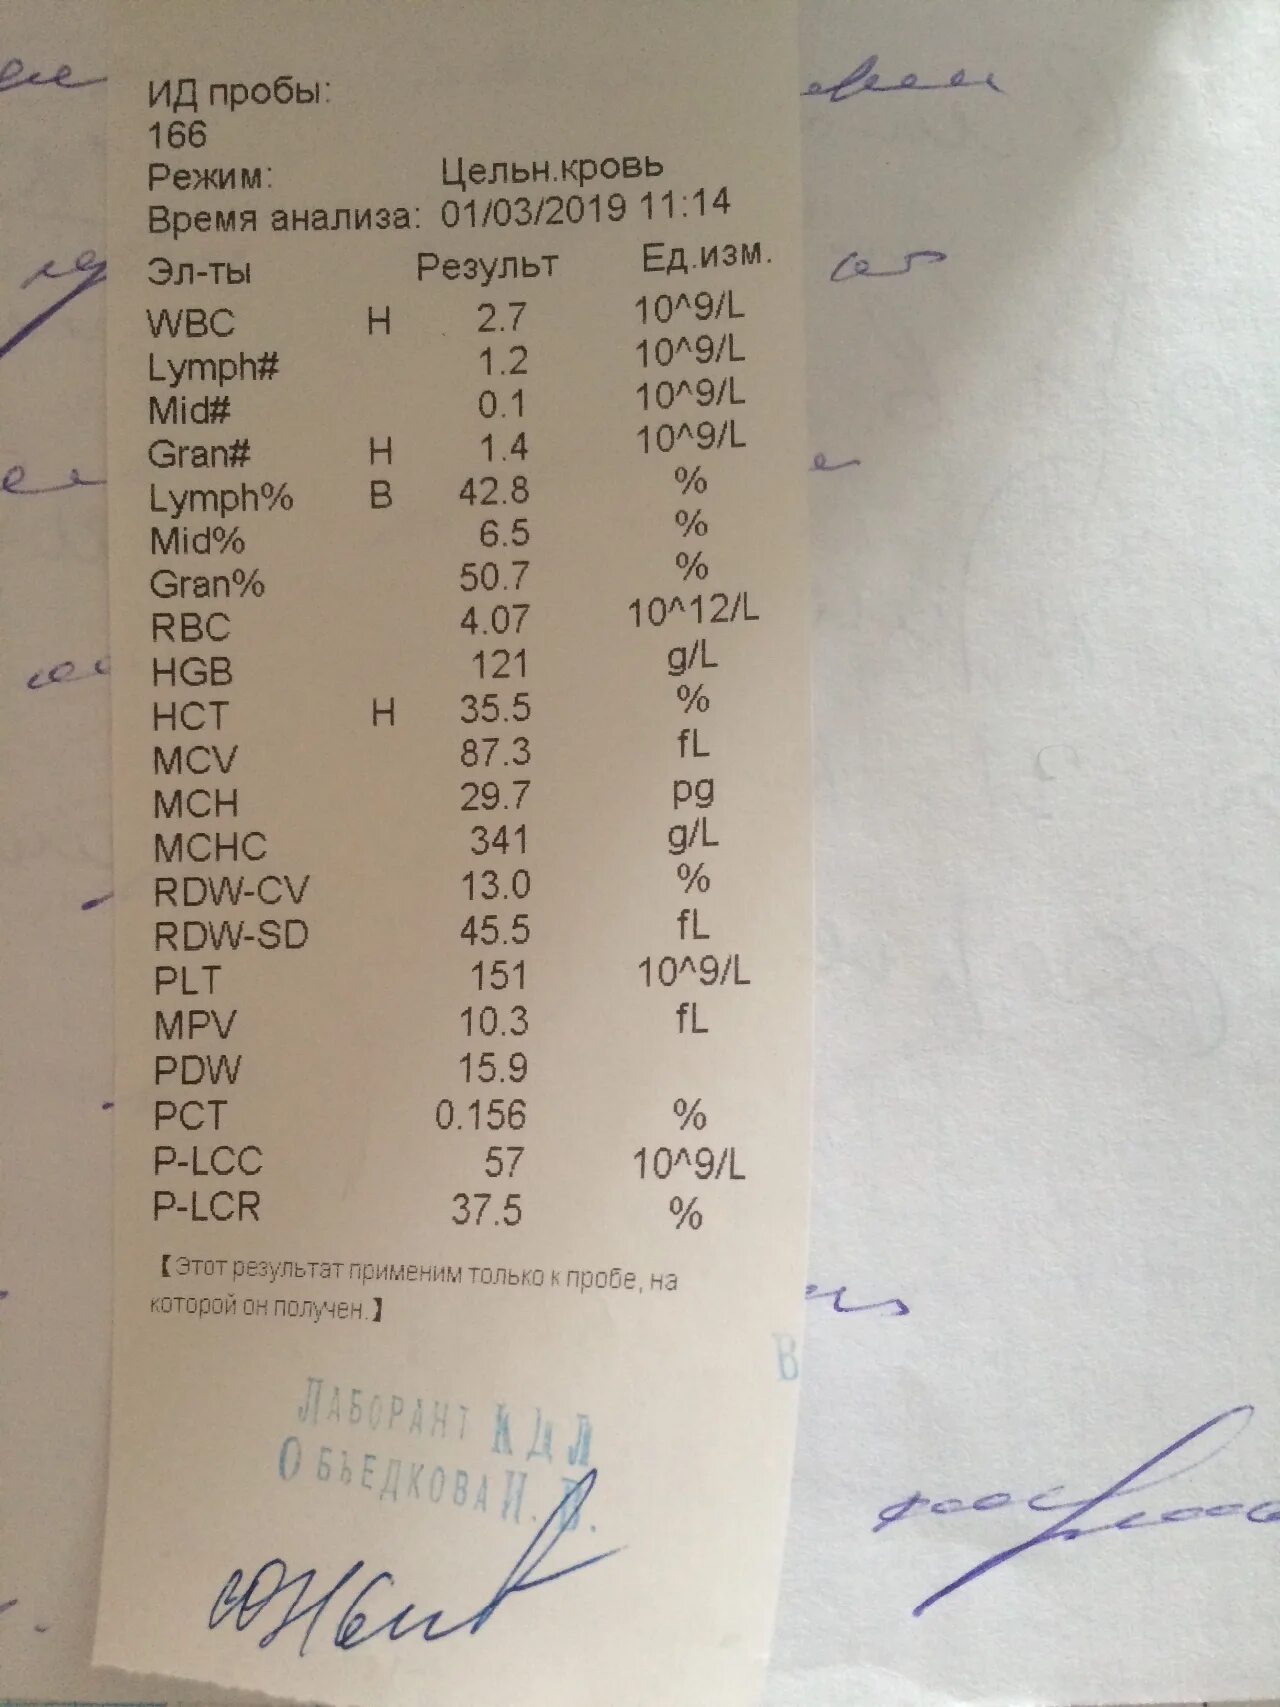 ИД пробы:
166
Режим: Цельн.кровь
Время анализа: 01/03/2019 11:14
Эл-ты Результ Ед.изм.
WBC Н 2.7 10^9/L
Lymph# 1.2 10^9/L
Mid# 0.1 10^9/L
Gran# Н 1.4 10^9/L
Lymph% В 42.8 %
Mid% 6.5 %
Gran% 50.7 %
RBC 4.07 10^12/L
HGB 121 g/L
HCT Н 35.5 %
MCV 87.3 fL
MCH 29.7 pg
MCHC 341 g/L
RDW-CV 13.0 %
RDW-SD 45.5 fL
PLT 151 10^9/L
MPV 10.3 fL
PDW 15.9
PCT 0.156 %
P-LCC 57 10^9/L
P-LCR 37.5 %
【Этот результат применим только к пробе, на
которой он получен.】
В
ЛАБОРАНТ КДЛ
ОБЪЕДКОВА И. В.